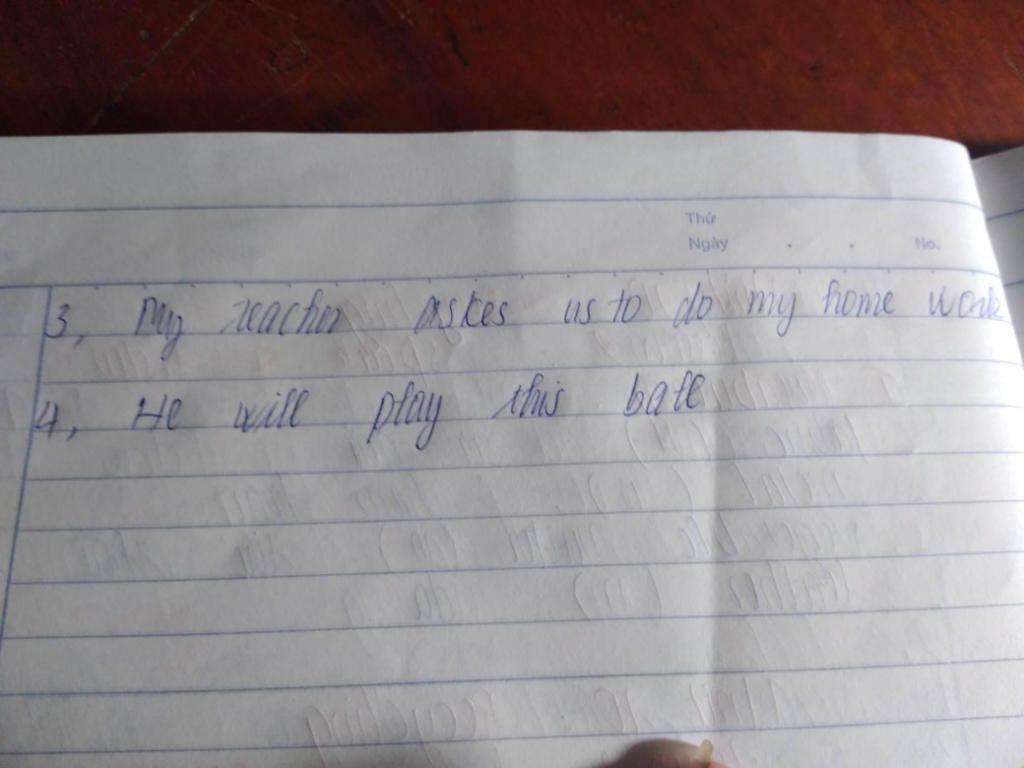 Thứ
Ngày . . No.
3, My teacher askes us to do my home work
4, He will play this ball